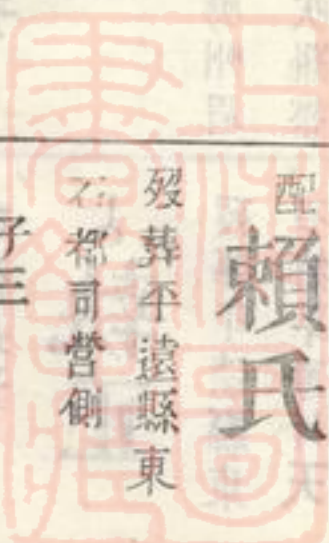 配賴氏
歿葬平遠縣東
石都司營側
子三